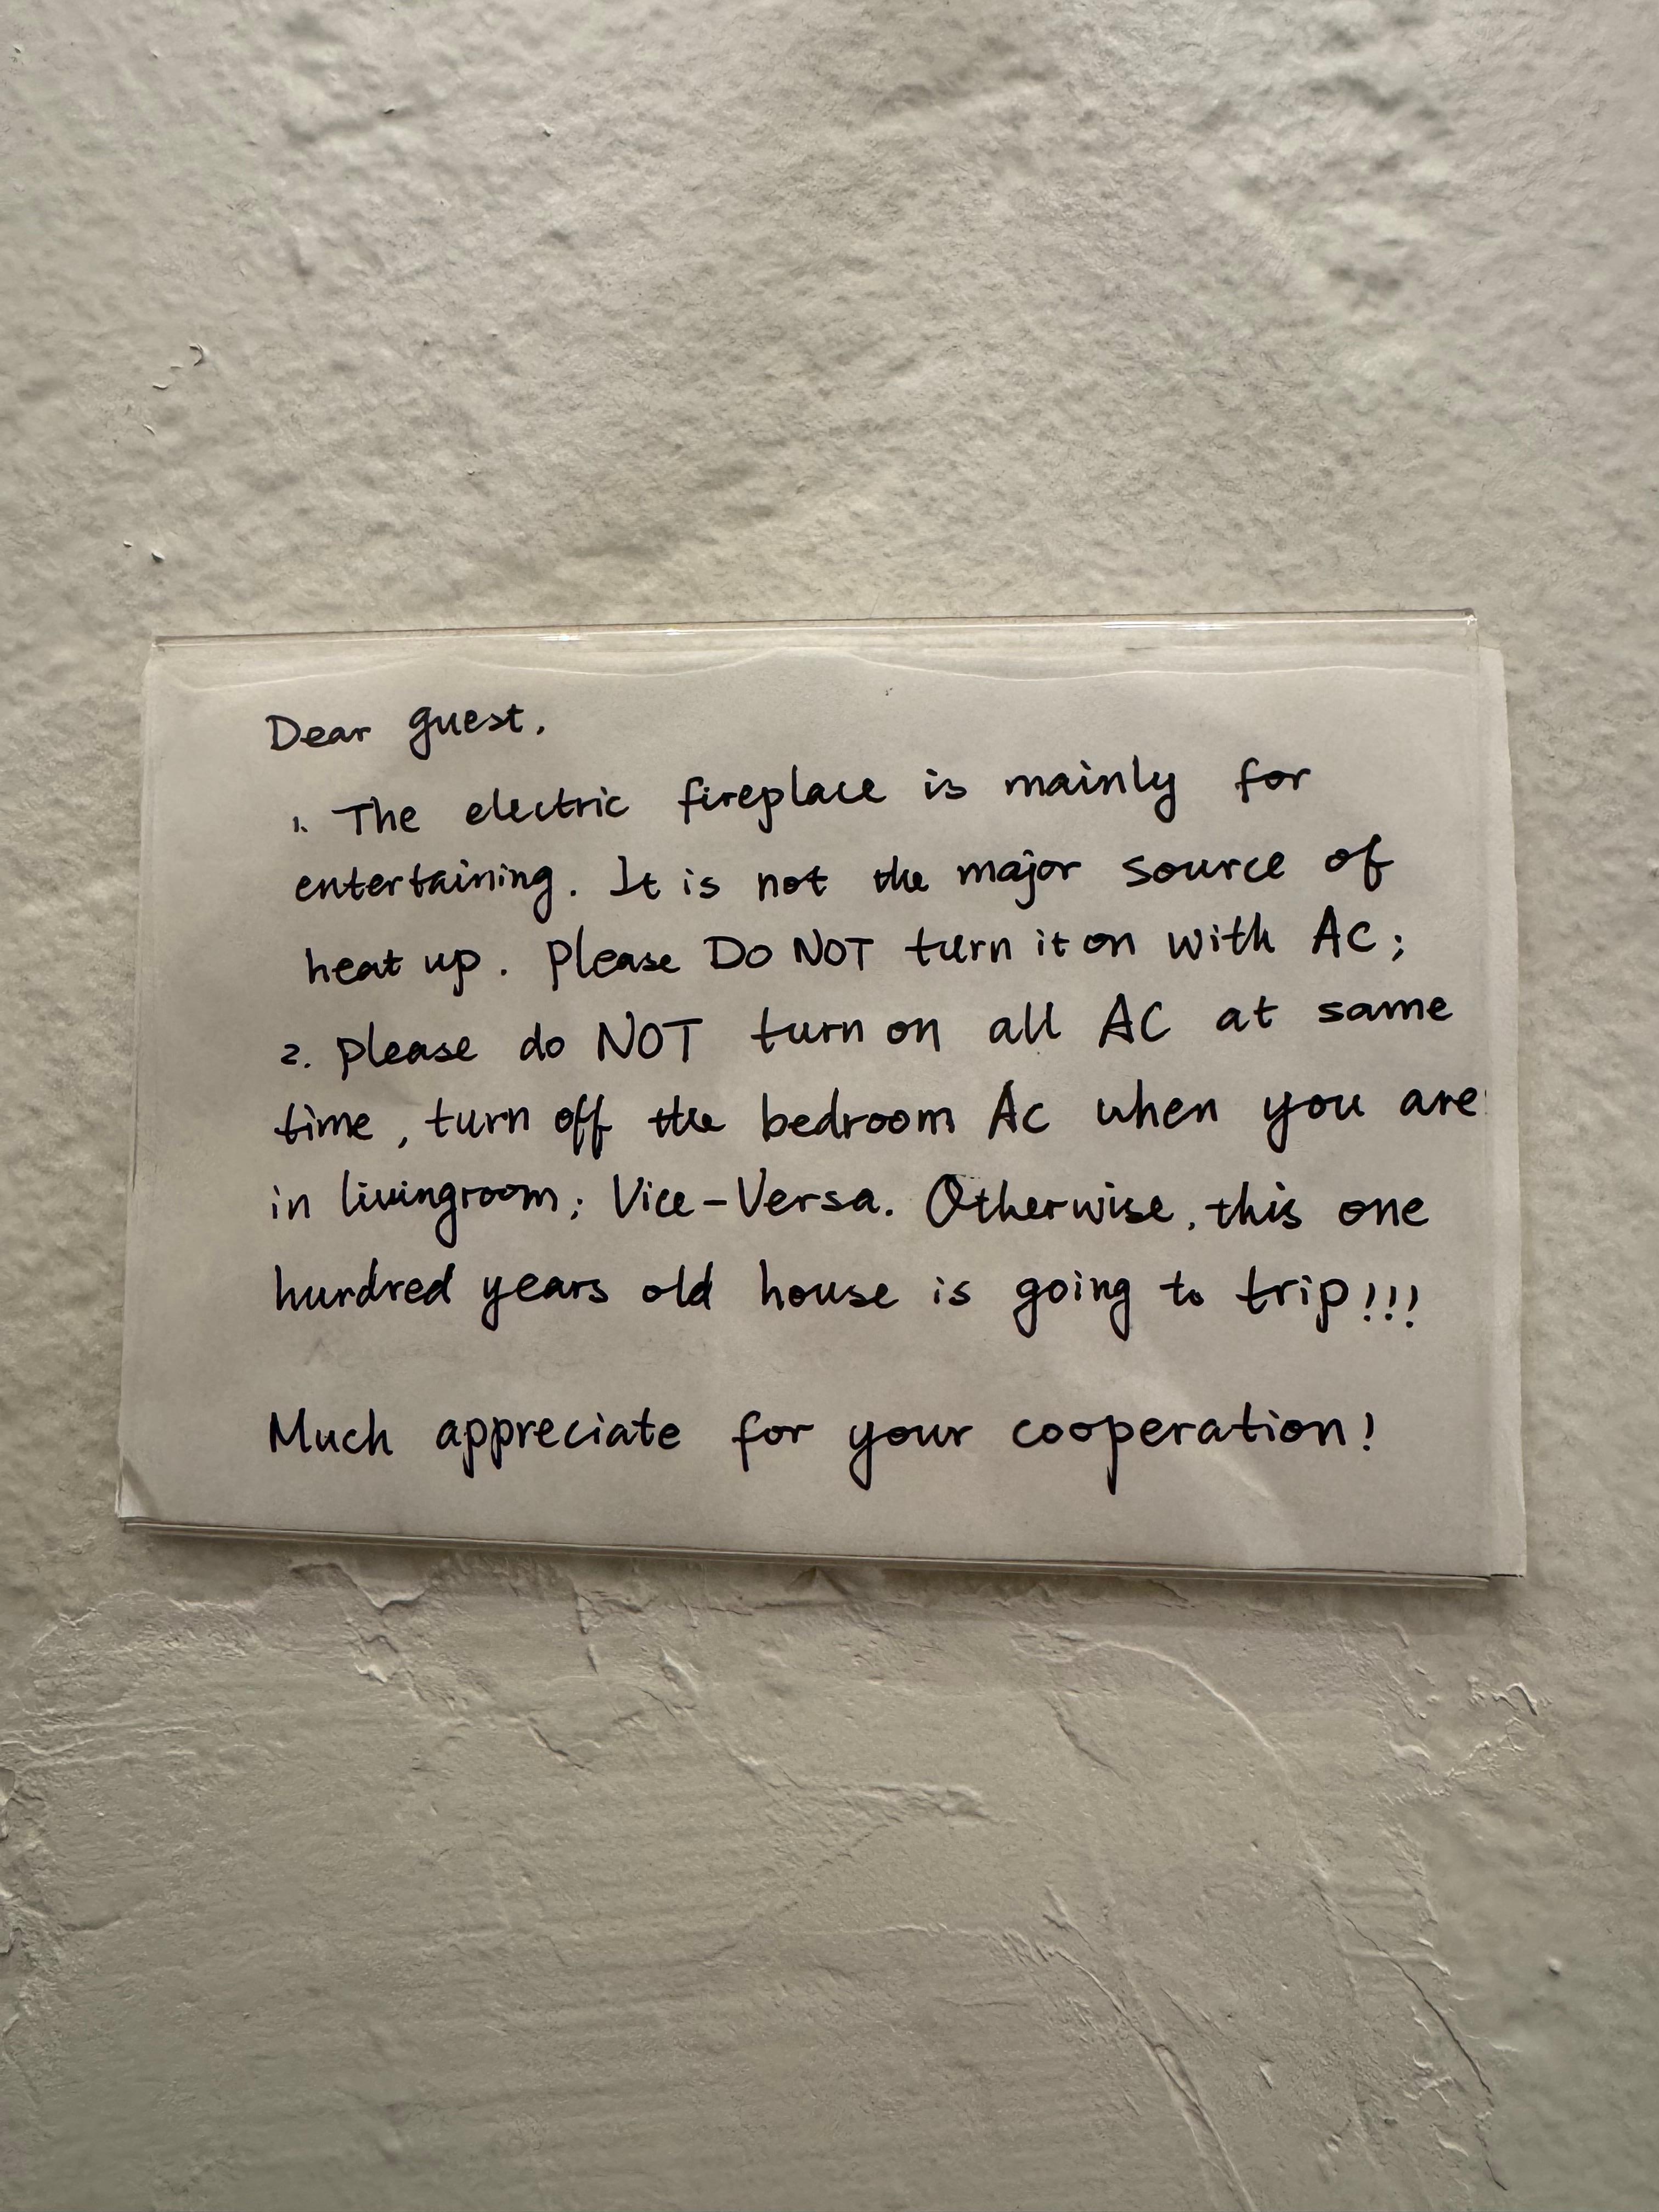 Dear guest,
1. The electric fireplace is mainly for
entertaining. It is not the major source of
heat up. Please DO NOT turn it on with AC;
2. please do NOT turn on all AC at same
time, turn off the bedroom AC when you are
in livingroom; Vice-Versa. Otherwise, this one
hundred years old house is going to trip!!!
Much appreciate for your cooperation!